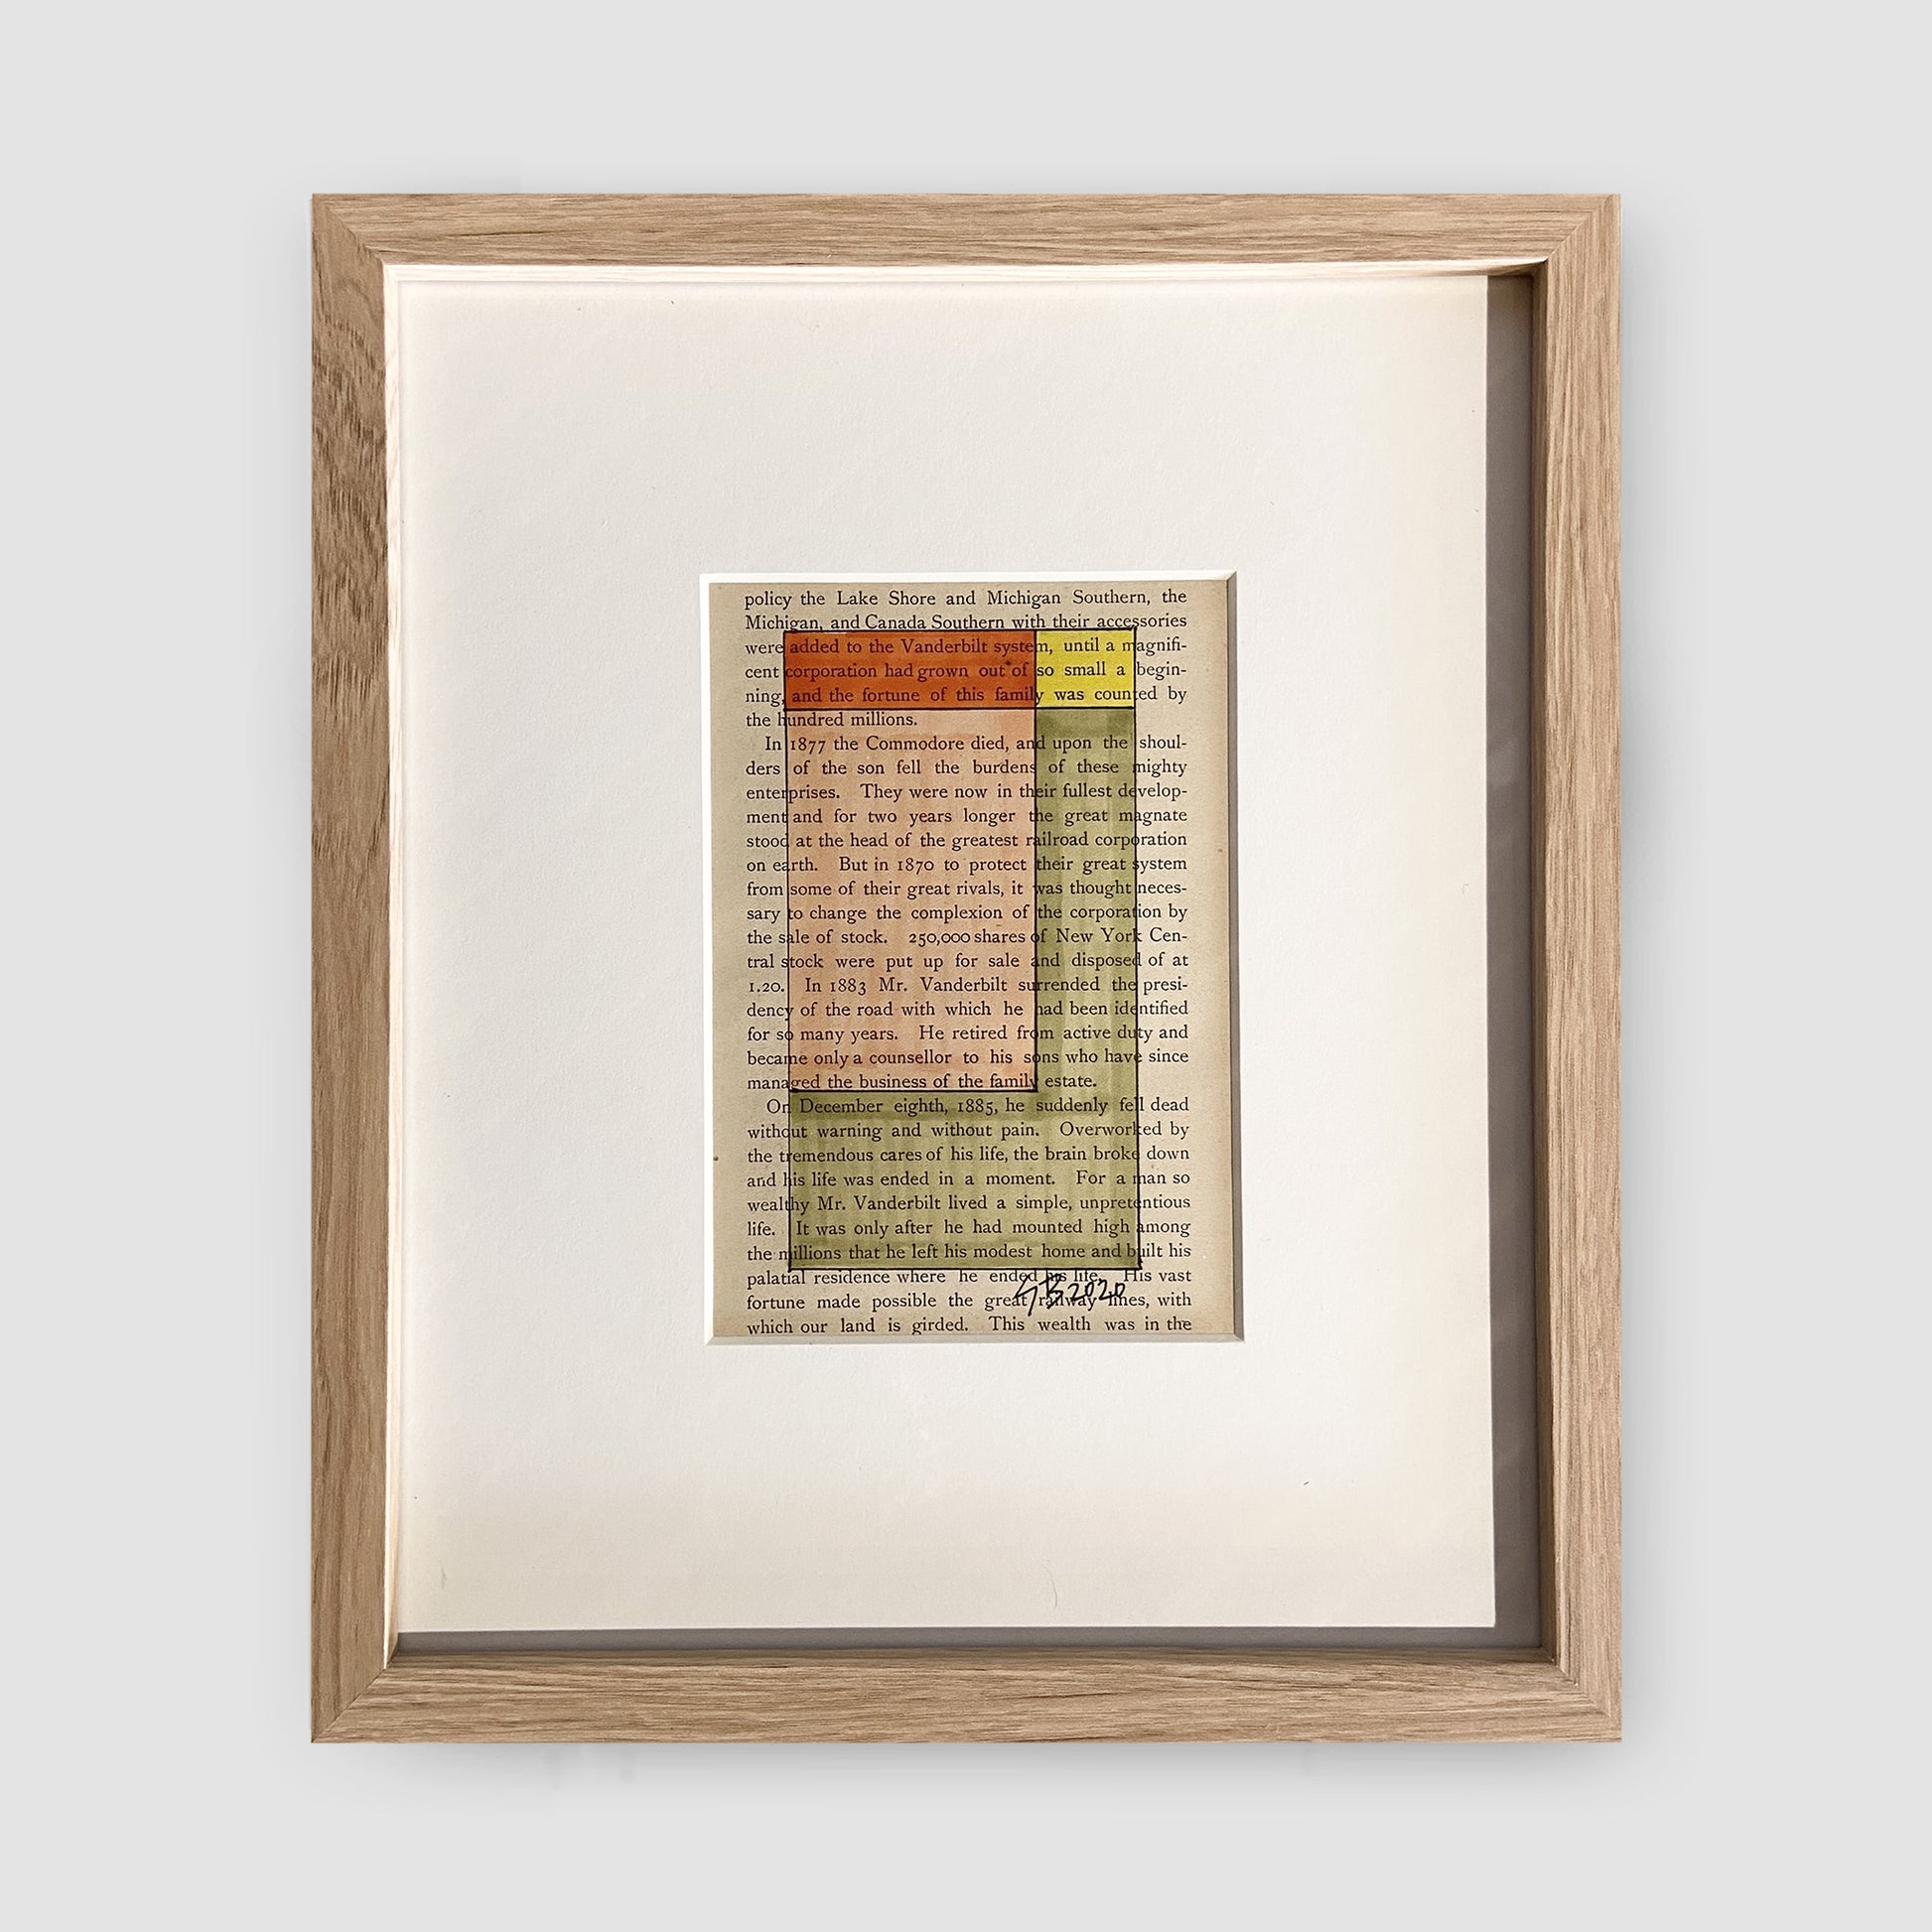 policy the Lake Shore and Michigan Southern, the
Michigan, and Canada Southern with their accessories
were added to the Vanderbilt system, until a magnifi-
cent corporation had grown out of so small a begin-
ning, and the fortune of this family was counted by
the hundred millions.
In 1877 the Commodore died, and upon the shoul-
ders of the son fell the burdens of these mighty
enterprises. They were now in their fullest develop-
ment and for two years longer the great magnate
stood at the head of the greatest railroad corporation
on earth. But in 1870 to protect their great system
from some of their great rivals, it was thought neces-
sary to change the complexion of the corporation by
the sale of stock. 250,000 shares of New York Cen-
tral stock were put up for sale and disposed of at
1.20. In 1883 Mr. Vanderbilt surrended the presi-
dency of the road with which he had been identified
for so many years. He retired from active duty and
became only a counsellor to his sons who have since
managed the business of the family estate.
On December eighth, 1885, he suddenly fell dead
without warning and without pain. Overworked by
the tremendous cares of his life, the brain broke down
and his life was ended in a moment. For a man so
wealthy Mr. Vanderbilt lived a simple, unpretentious
life. It was only after he had mounted high among
the millions that he left his modest home and built his
palatial residence where he ended his life. His vast
fortune made possible the great railway lines, with
GB 2020
which our land is girded. This wealth was in the